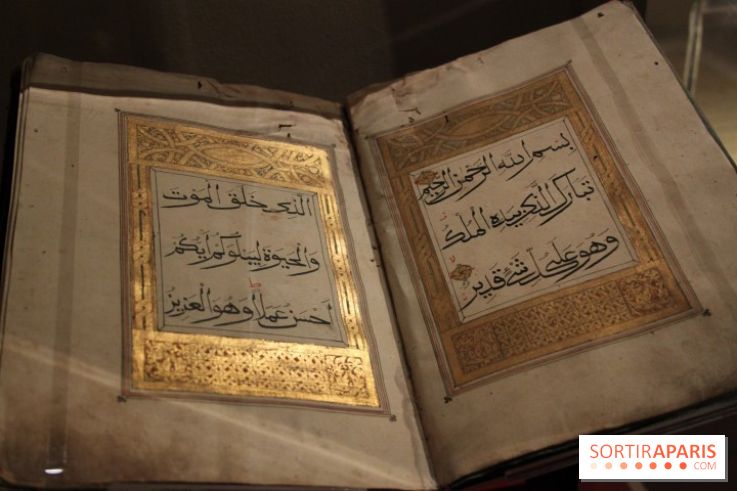 بسم الله الرحمن الرحيم
تبارك الذي بيده الملك
وهو على كل شئ قدير
الذي خلق الموت
والحيوة ليبلوكم ايكم
احسن عملا وهو العزيز
SORTIRAPARIS
.COM